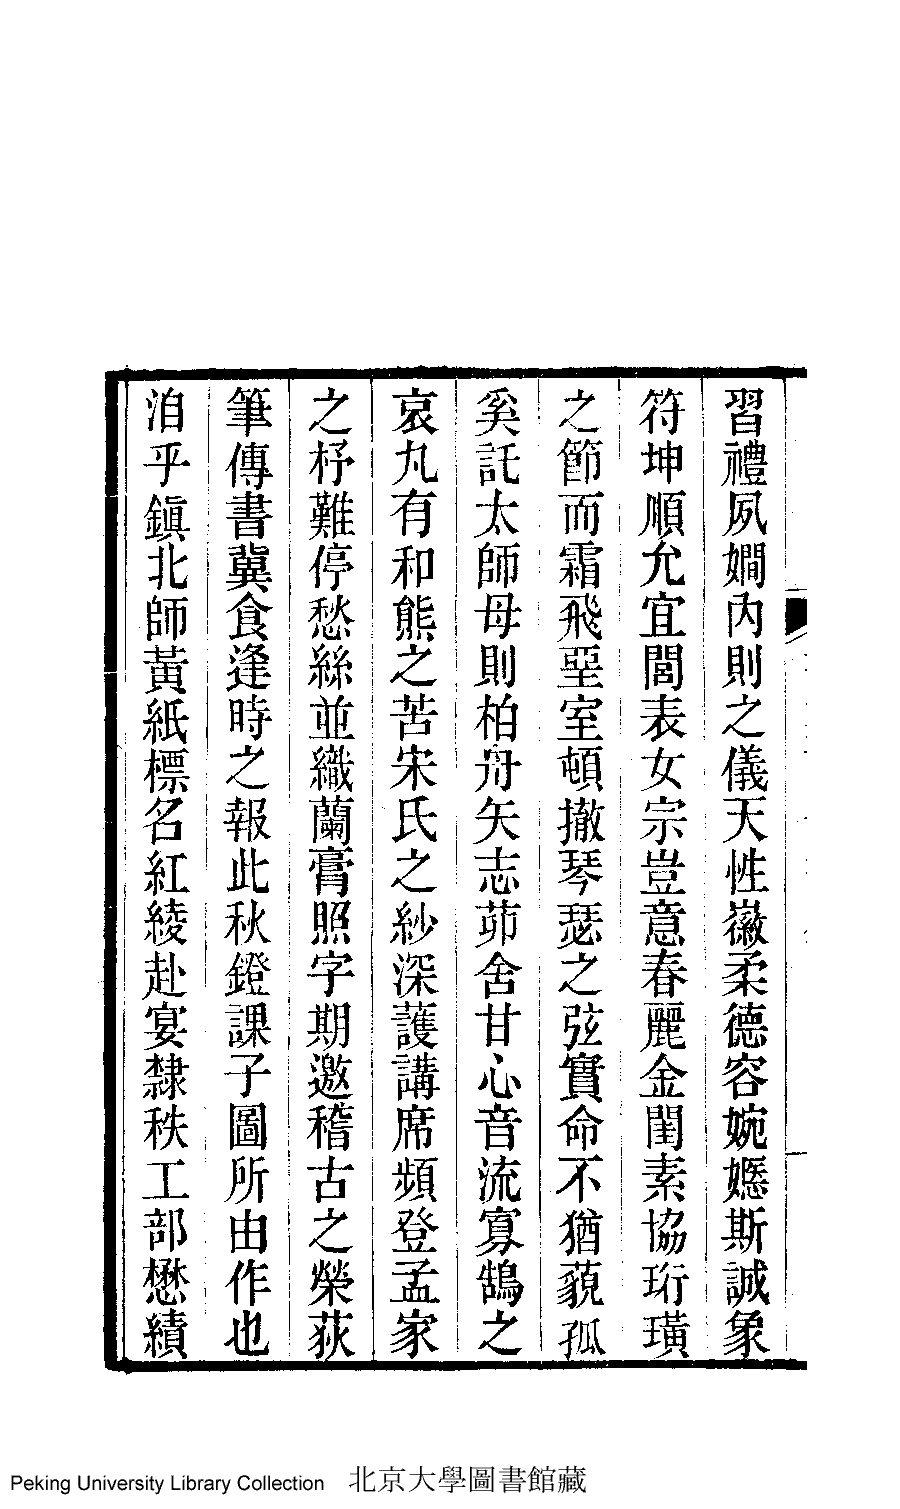 習禮夙嫺內則之儀天性徽柔德容婉嬺斯誠象
符坤順允宜閫表女宗豈意春麗金閨素協珩璜
之節而霜飛堊室頓撤琴瑟之弦實命不猶藐孤
奚託太師母則柏舟矢志茆舍甘心音流寡鵠之
哀丸有和熊之苦宋氏之紗深護講席頻登孟家
之杼難停愁絲並織蘭膏照字期邀稽古之榮荻
筆傳書冀食逢時之報此秋鐙課子圖所由作也
洎乎鎮北師黃紙標名紅綾赴宴隸秩工部懋績
Peking University Library Collection 北京大學圖書館藏